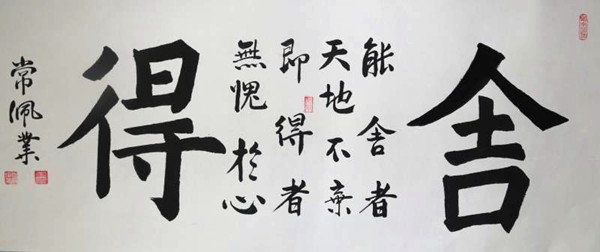 舍
能舍者
天地不棄
即得者
無愧於心
得
常佩業